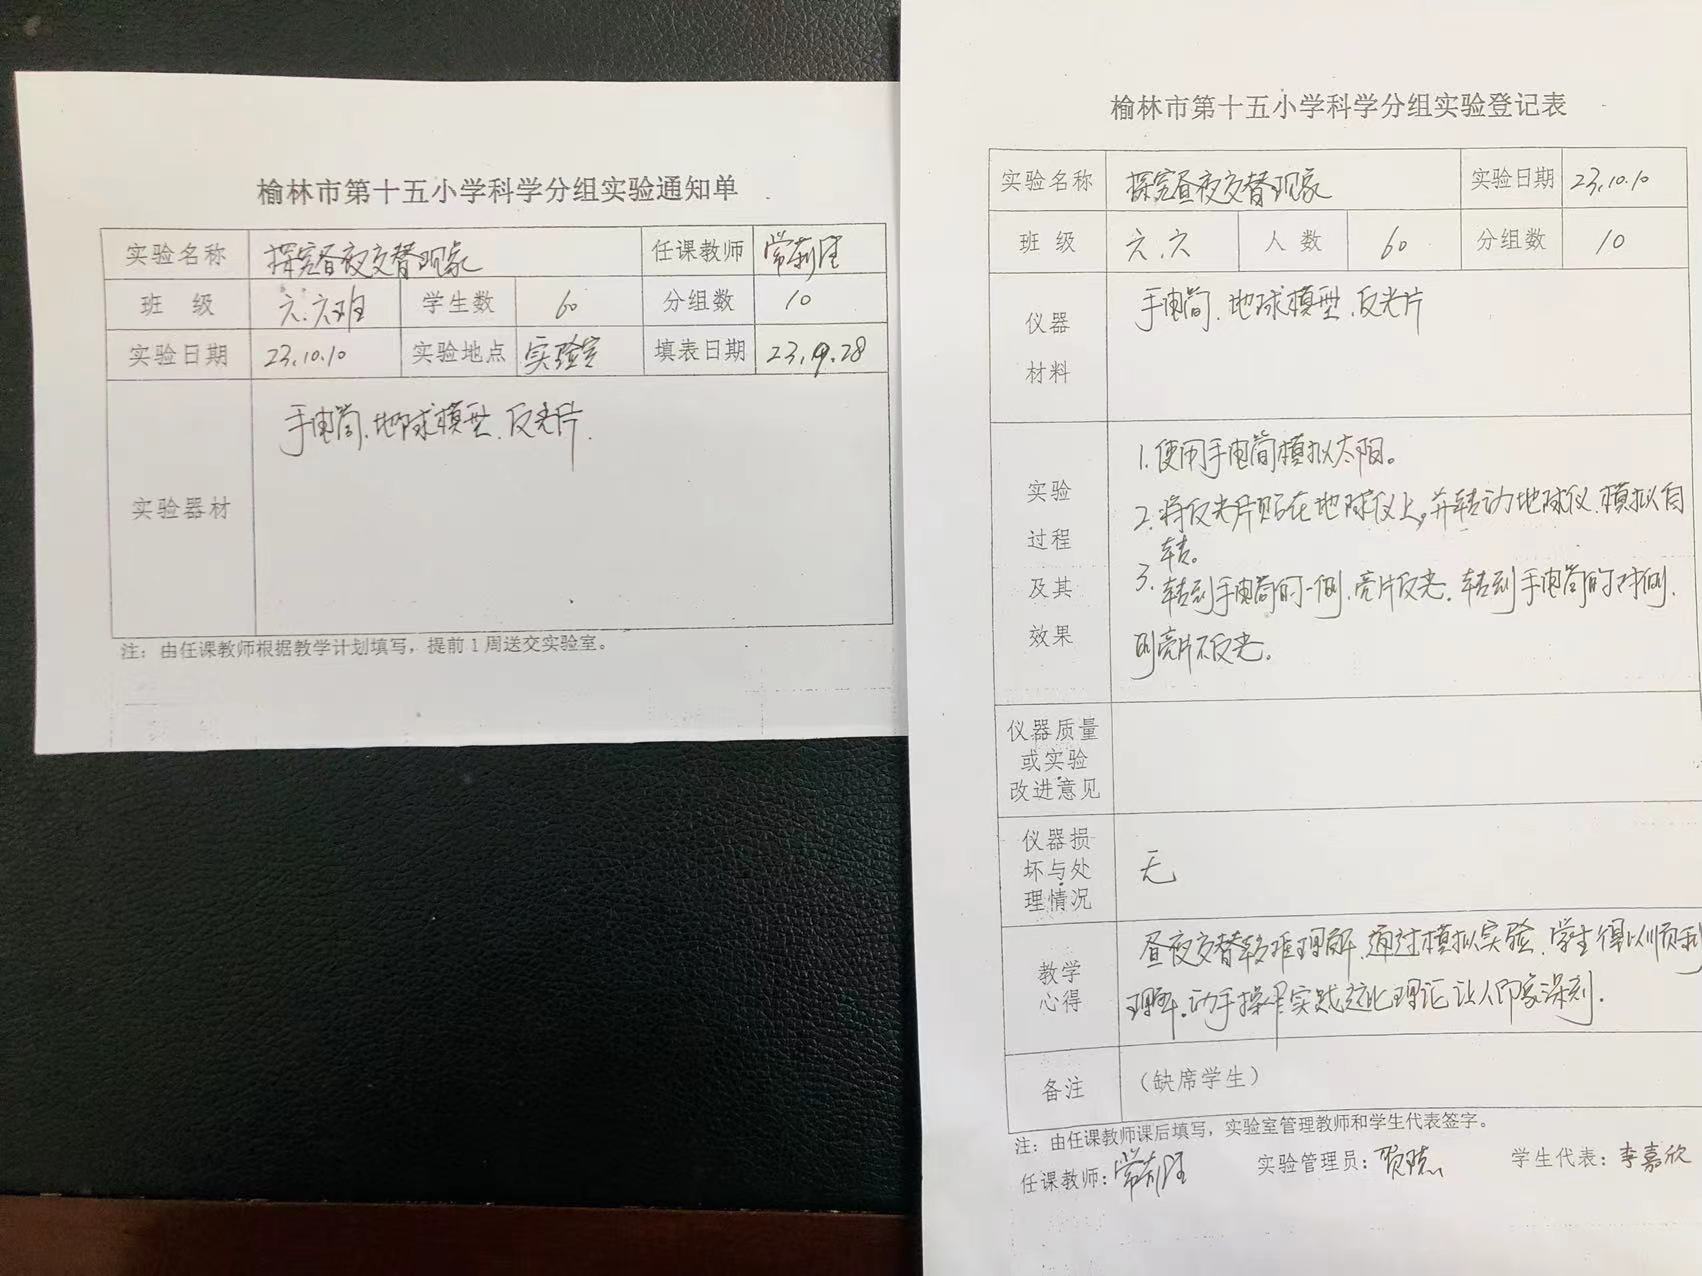 榆林市第十五小学科学分组实验通知单
实验名称 探究昼夜交替现象 任课教师
班 级 六.六班 学生数 60 分组数 10
实验日期 23.10.10 实验地点 实验室 填表日期 23.9.28
实验器材 手电筒.地球模型.反光片.
注：由任课教师根据教学计划填写，提前1周送交实验室。
榆林市第十五小学科学分组实验登记表
实验名称 探究昼夜交替现象 实验日期 23.10.10
班 级 六.六 人 数 60 分组数 10
仪器材料 手电筒.地球模型.反光片
实验过程及其效果 1.使用手电筒模拟太阳。
2.将反光片贴在地球仪上,并转动地球仪.模拟自
转。
3.转到手电筒的一侧.亮片反光.转到手电筒的对侧.
则亮片不反光。
仪器质量或实验改进意见
仪器损坏与处理情况 无
教学心得 昼夜交替较难理解.通过模拟实验.学生得以顺利
理解.动手操作实践这比理论让人印象深刻.
备注 （缺席学生）
注：由任课教师课后填写，实验室管理教师和学生代表签字。
任课教师： 实验管理员： 学生代表：李嘉欣